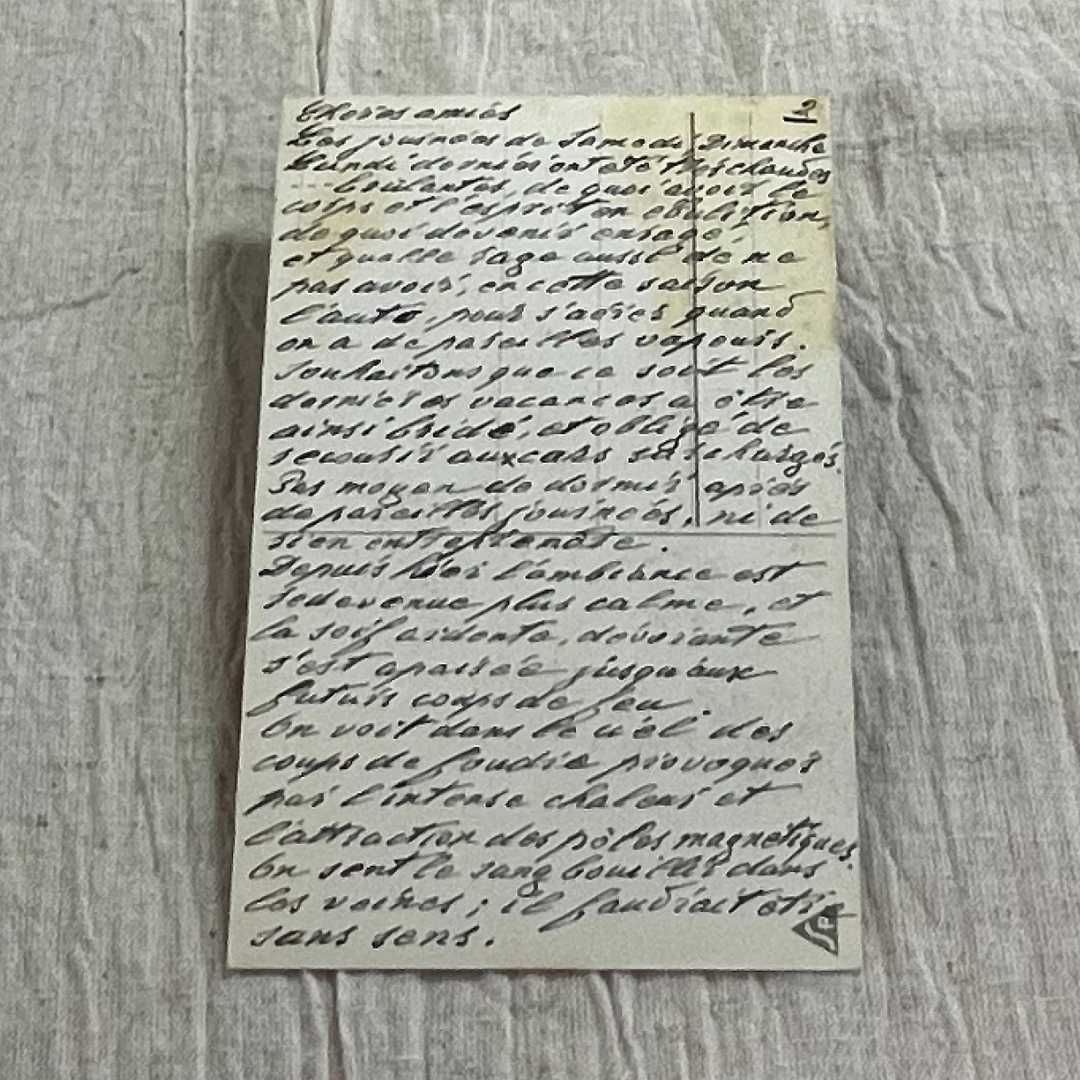 2
Chères amies
Les journées de Samedi, Dimanche
Lundi derniers ont été très chaudes
--- brûlantes, de quoi avoir le
corps et l'esprit en ébulition,
de quoi devenir enragé,
et quelle rage aussi de ne
pas avoir, en cette saison
l'auto, pour s'aérer quand
on a de pareilles vapeurs.
Souhaitons que ce soit les
dernières vacances à être
ainsi bridé, et obligé de
recourir aux cars surchargés.
Pas moyen de dormir après
de pareilles journées, ni de
rien entreprendre.
Depuis hier l'ambiance est
redevenue plus calme, et
la soif ardente, dévorante
s'est apaisée jusqu'aux
futurs coups de feu.
On voit dans le ciel des
coups de foudre provoqués
par l'intense chaleur et
l'attraction des pôles magnétiques.
On sent le sang bouillir dans
les veines ; il faudrait être
sans sens.